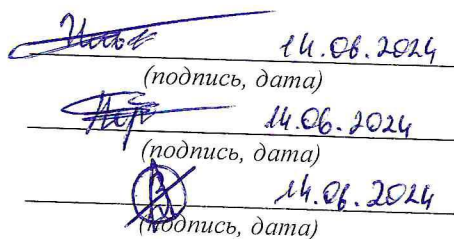 14.06.2024
(подпись, дата)
14.06.2024
(подпись, дата)
14.06.2024
(подпись, дата)